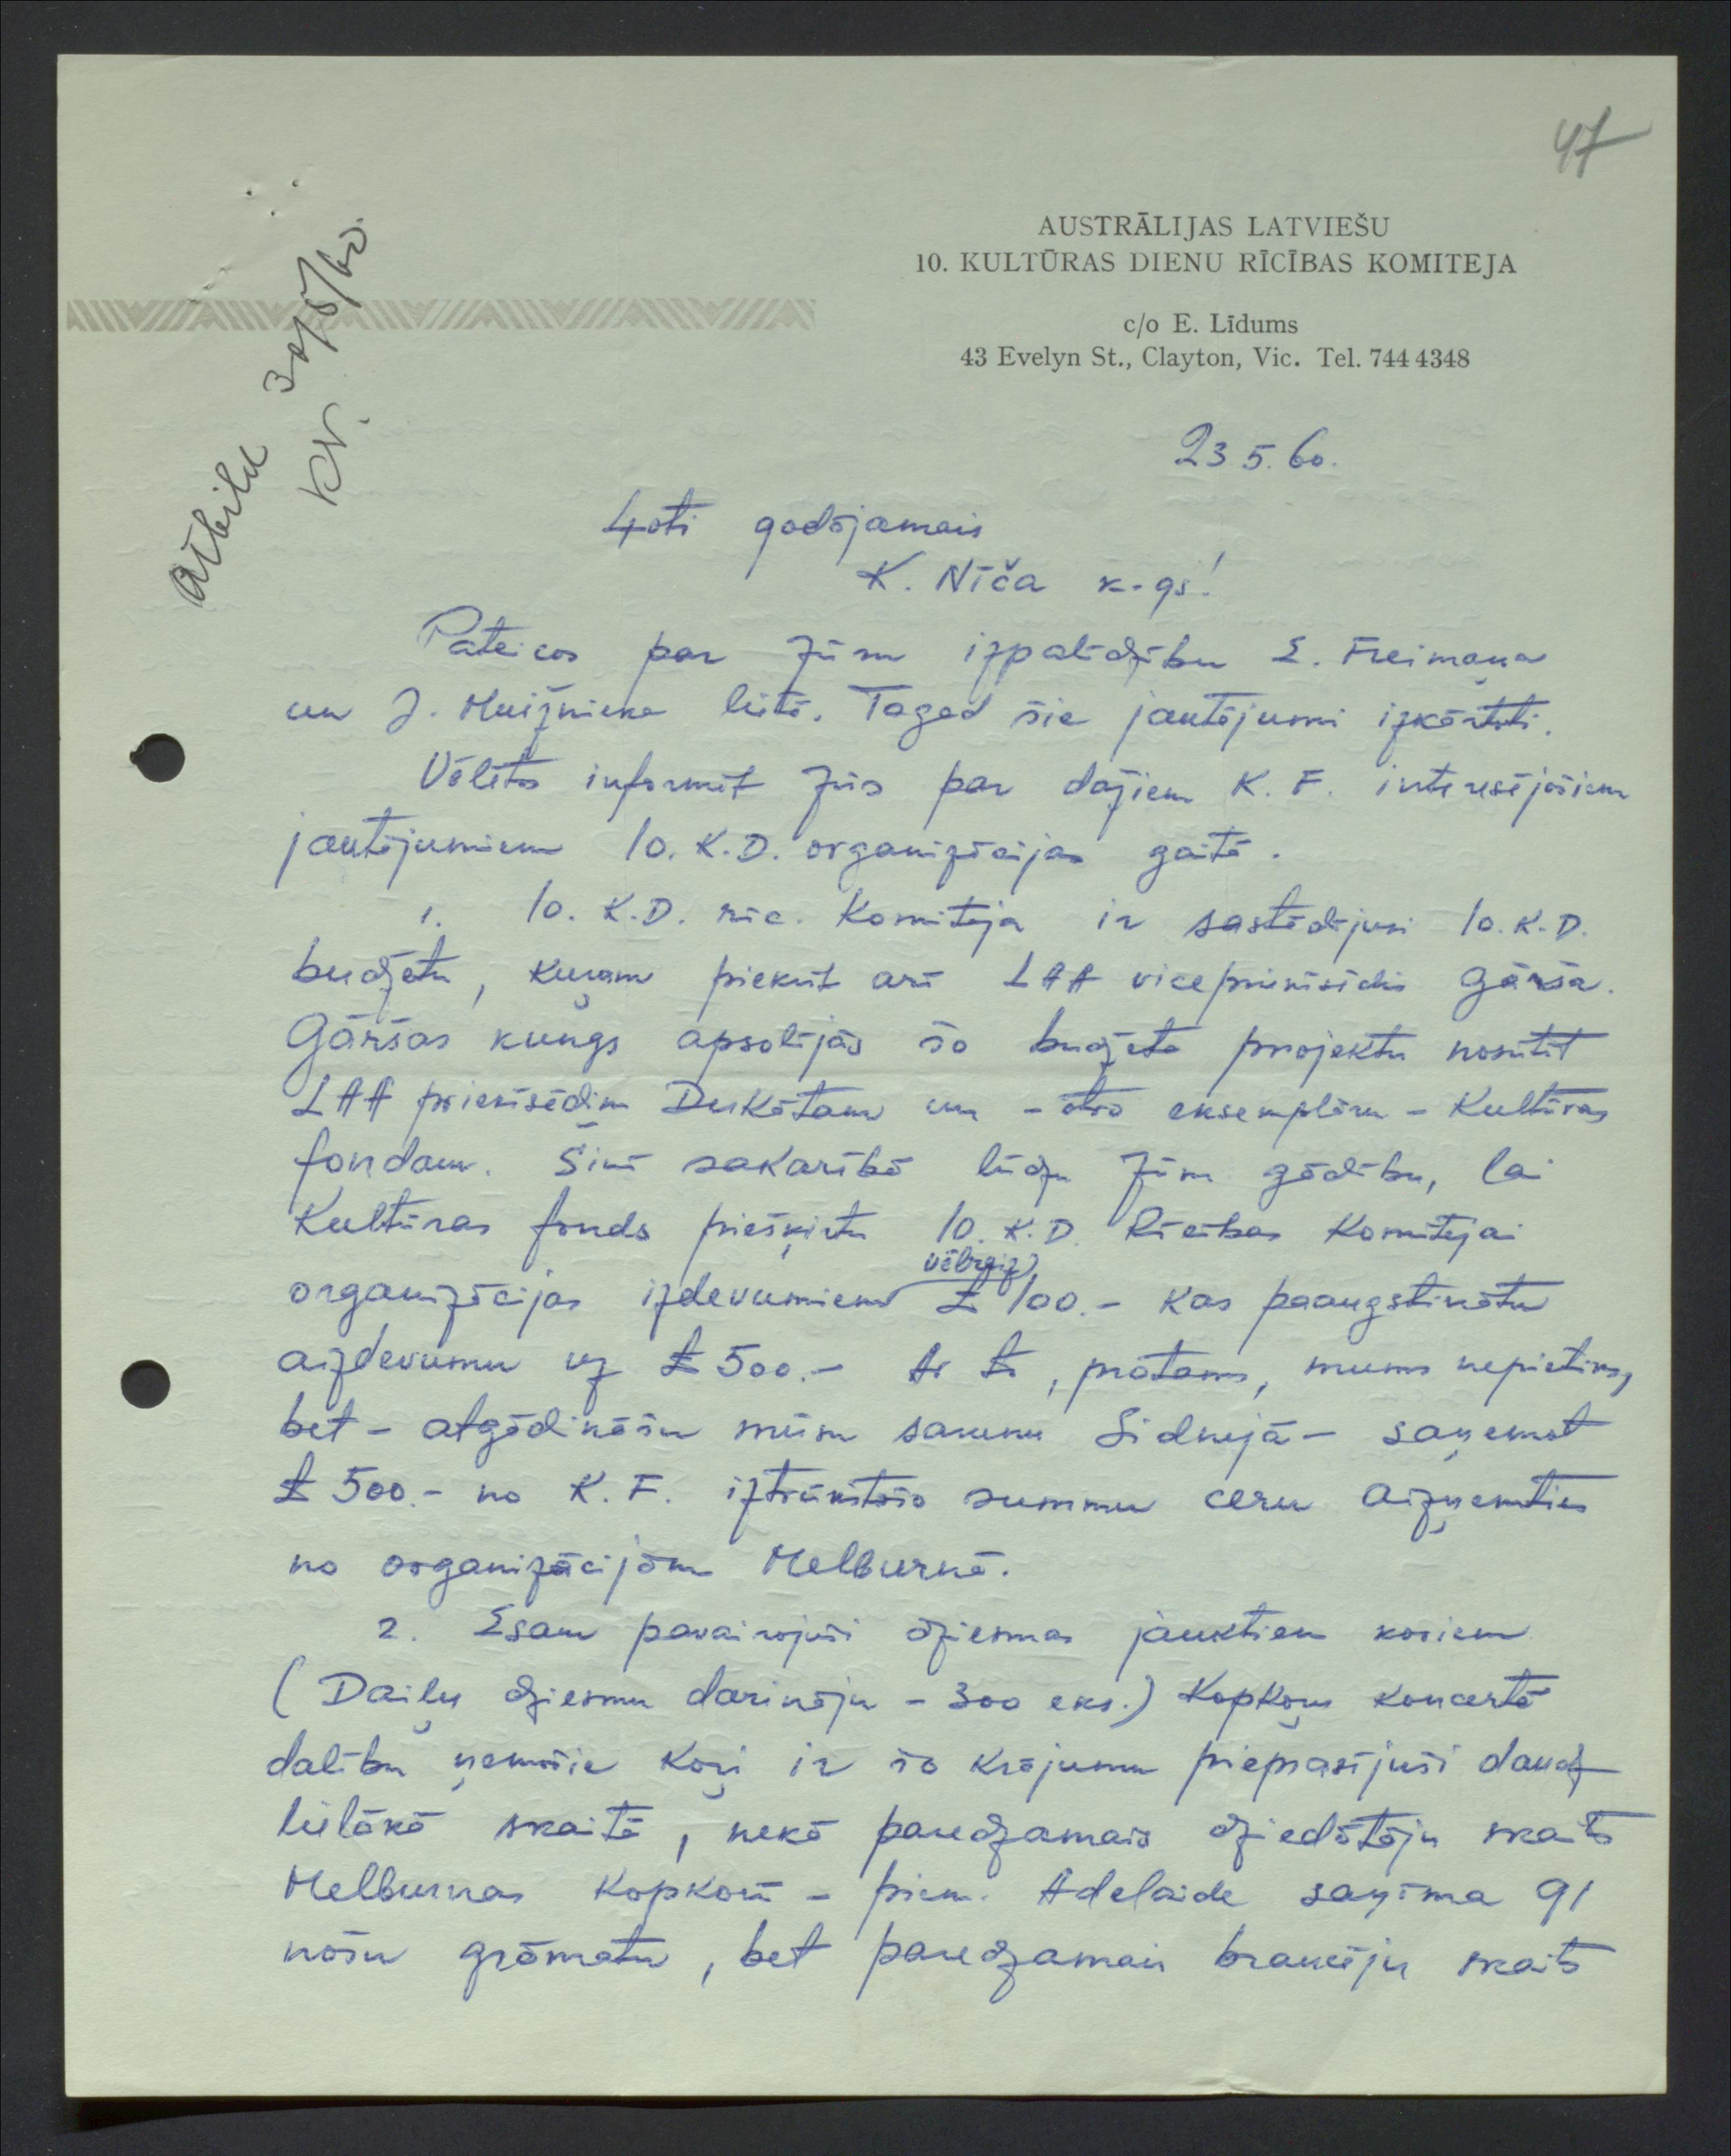 47
AUSTRĀLIJAS LATVIEŠU
10. KULTŪRAS DIENU RĪCĪBAS KOMITEJA
c/o E. Līdums
43 Evelyn St., Clayton, Vic. Tel. 744 4348
Atbild 30/5/60.
KN.
23.5.60.
Ļoti godājamais
K. Nīča k-gs!
Pateicos par Jūsu izpalīdzību E. Freimaņa
un J. Muižnieka lietā. Tagad šie jautājumi izkārtoti.
Vēlētos informēt Jūs par dažiem K. F. interesējošiem
jautājumiem 10. K.D. organizācijas gaitā.
1. 10. K.D. rīc. Komiteja ir sastādījusi 10. K.D.
budžetu, kuŗam piekrīt arī LAA vicepriekšsēdis Gārša.
Gāršas kungs apsolījās šo budžeta projektu nosūtīt
LAA priekšsēdim Deikātam un - otro eksemplāru - Kultūras
fondam. Šinī sakarībā lūdzu Jūsu gādību, lai
Kultūras fonds piešķirtu 10. K.D. Rīcības Komitejai
vēlreiz
organizācijas izdevumiem £ 100.- kas paaugstinātu
aizdevumu uz £ 500.- Ar to, protams, mums nepietiks,
bet - atgādināšu mūsu sarunu Sidnejā - saņemot
£ 500.- no K. F. iztrūkstošo summu ceru aizņemties
no organizācijām Melburnā.
2. Esam pavairojuši dziesmas jauktiem koriem
(Daiļu dziesmu darināju - 300 eks.) Kopkoŗu koncertā
dalību ņemošie koŗi ir šo krājumu pieprasījuši daudz
lielākā skaitā, nekā paredzamais dziedātāju skaits
Melburnas kopkorī - piem. Adelaide saņēma 91
nošu grāmatu, bet paredzamais braucēju skaits